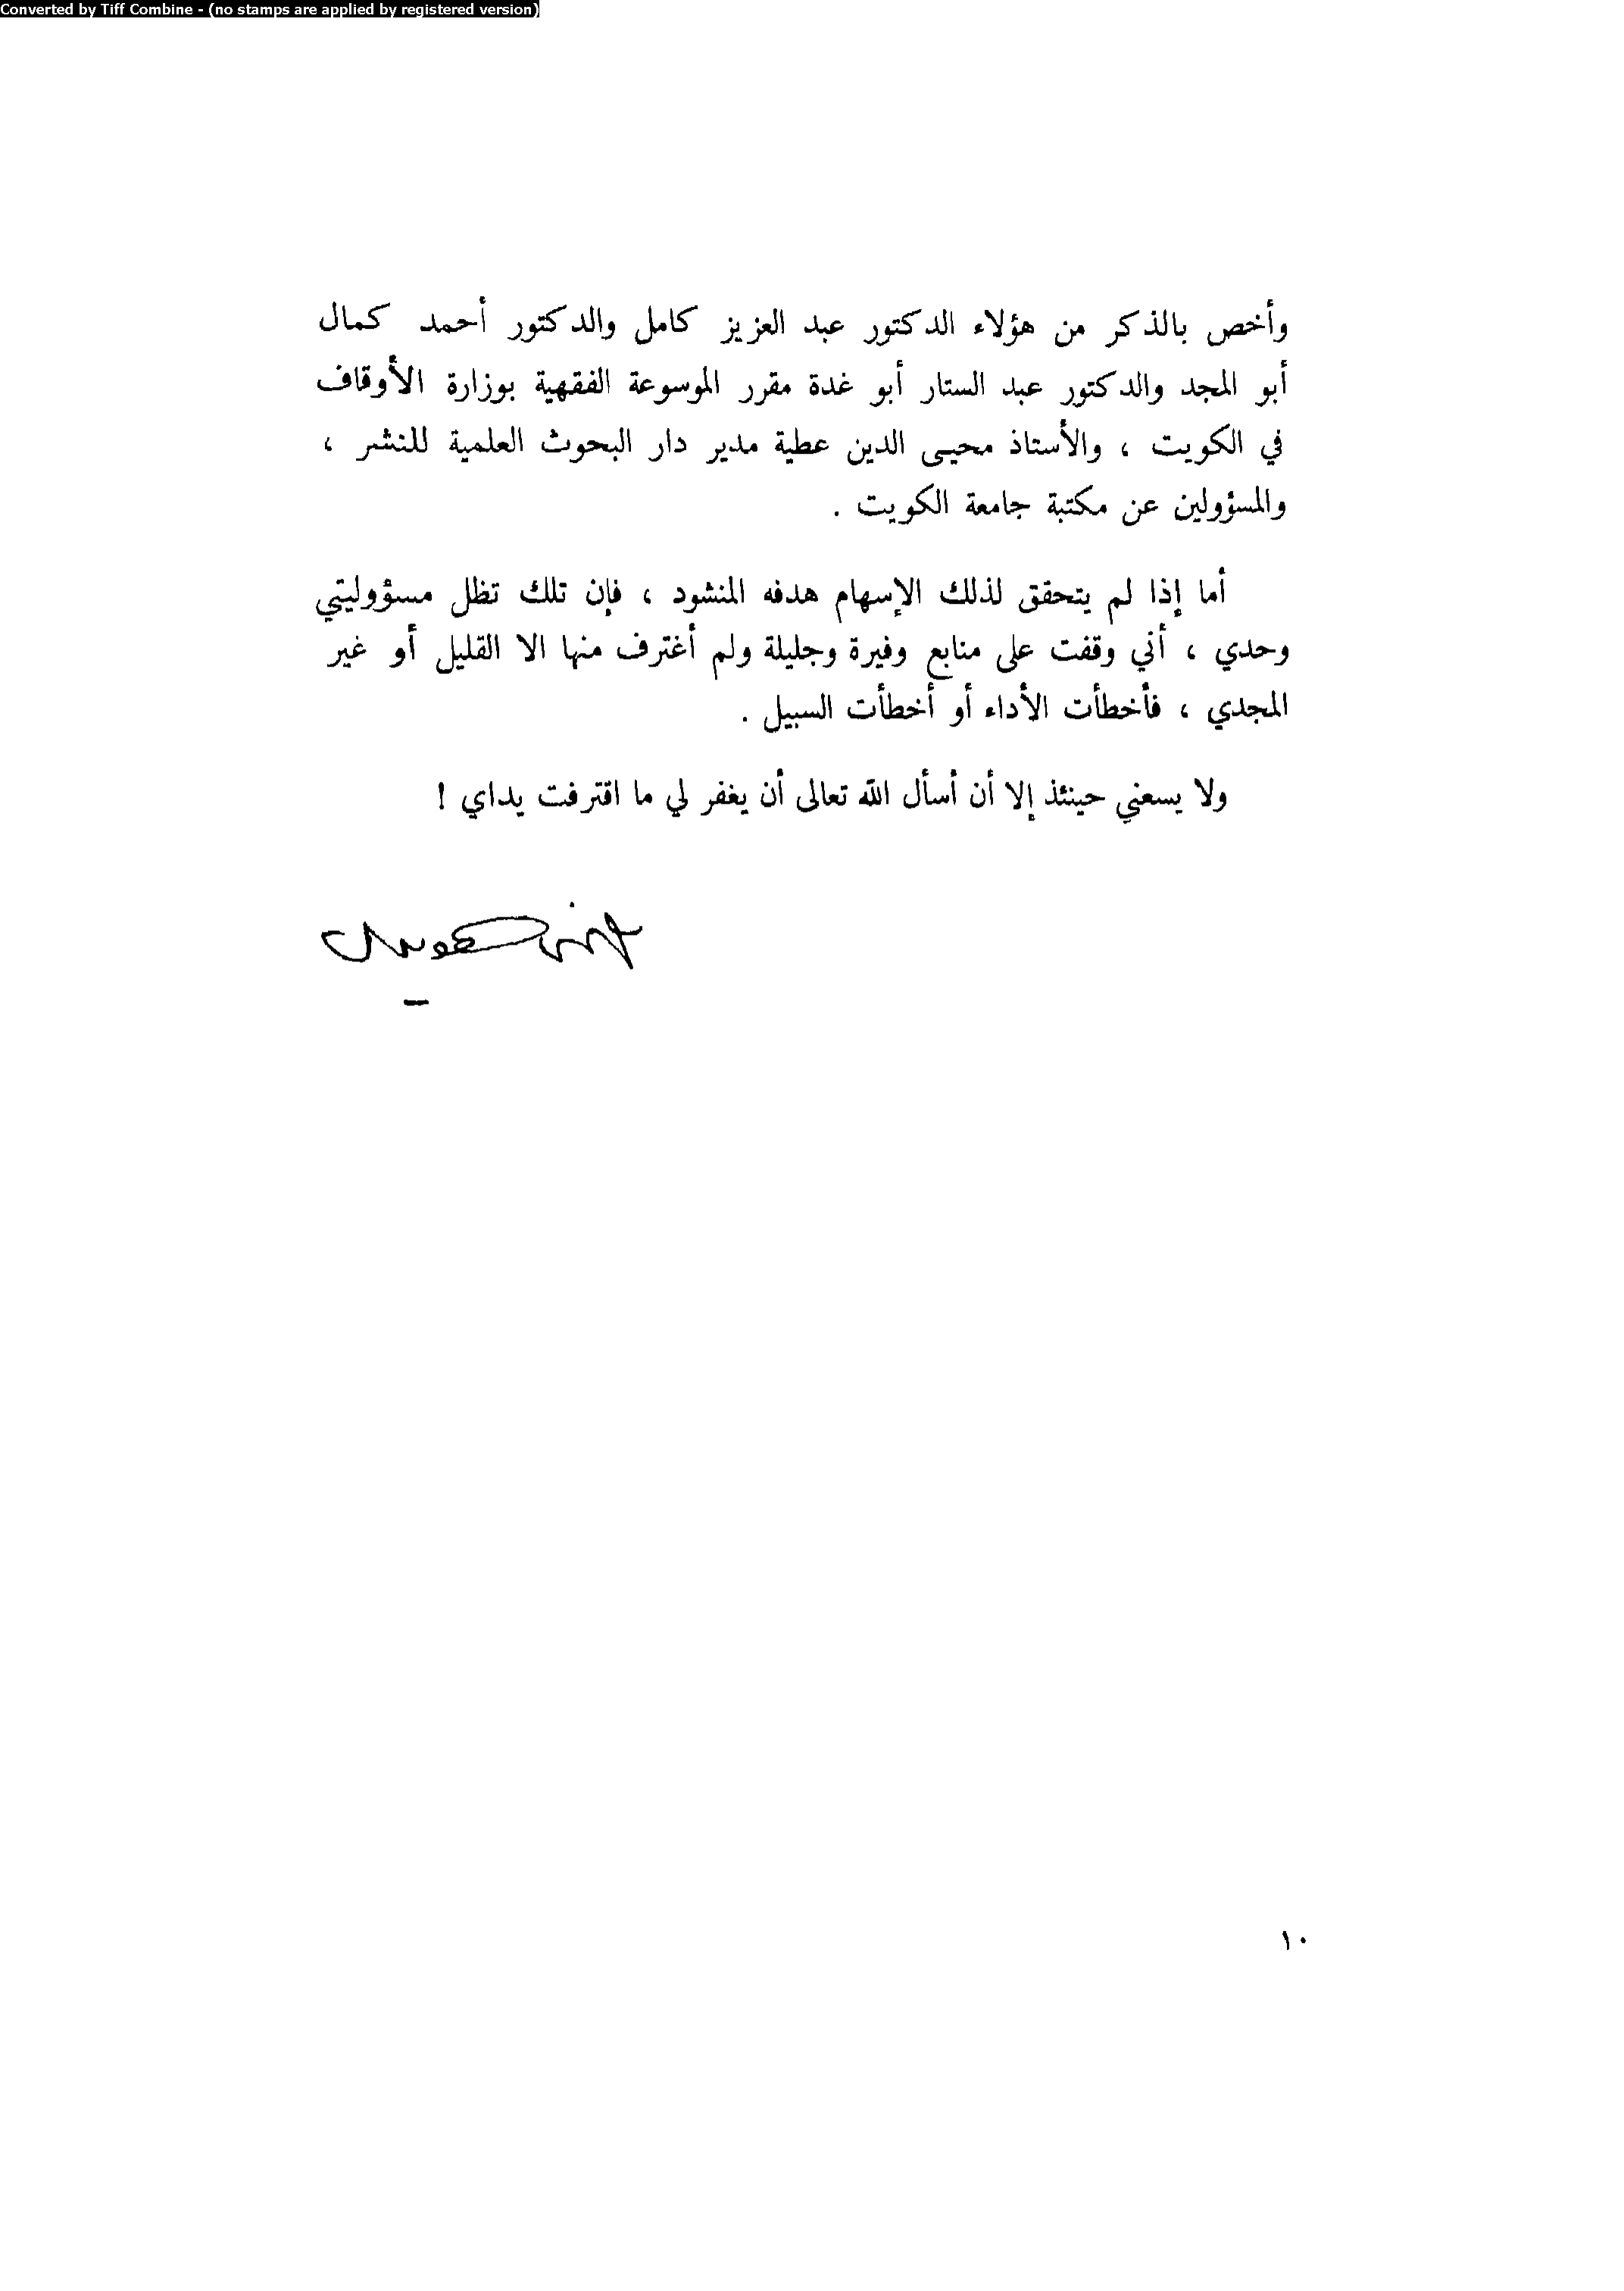 Converted by Tiff Combine - (no stamps are applied by registered version)
وأخص بالذكر من هؤلاء الدكتور عبد العزيز كامل والدكتور أحمد كمال
أبو المجد والدكتور عبد الستار أبو غدة مقرر الموسوعة الفقهية بوزارة الأوقاف
في الكويت ، والأستاذ محيى الدين عطية مدير دار البحوث العلمية للنشر ،
والمسؤولين عن مكتبة جامعة الكويت .
أما إذا لم يتحقق لذلك الإسهام هدفه المنشود ، فإن تلك تظل مسؤوليتي
وحدي ، أني وقفت على منابع وفيرة وجليلة ولم أغترف منها الا القليل أو غير
المجدي ، فأخطأت الأداء أو أخطأت السبيل .
ولا يسعني حينئذ إلا أن أسأل الله تعالى أن يغفر لي ما اقترفت يداي !
١٠